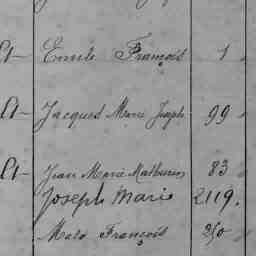 Et Emile François 1
Et Jacques Marie Joseph 99
Et Jean Marie Mathurin 83
Joseph Marie 2119.
François